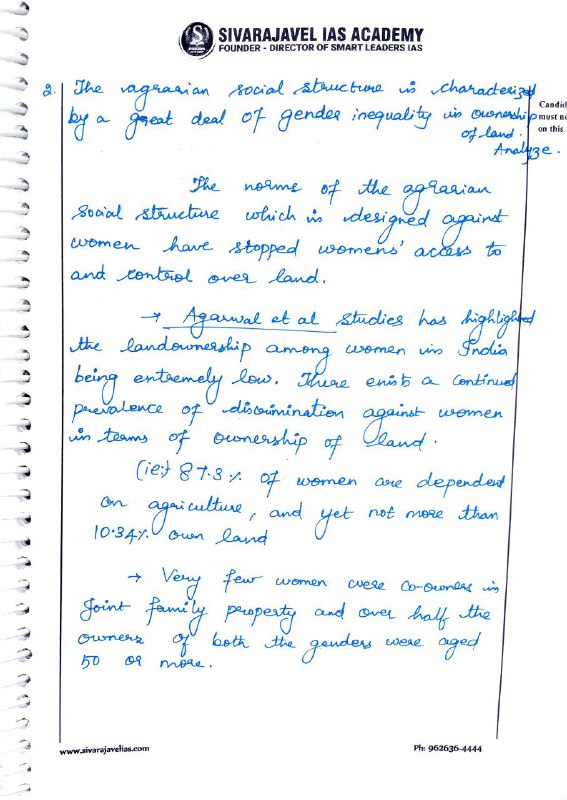 SIVARAJAVEL IAS ACADEMY
FOUNDER - DIRECTOR OF SMART LEADERS IAS
2. The agrarian social structure is characterized
by a great deal of gender inequality in ownership
of land.
Analyze.
Candid
must no
on this
The norms of the agrarian
social structure which is designed against
women have stopped womens' access to
and control over land.
→ Agarwal et al studies has highlighted
the landownership among women in India
being extremely low. There exists a continued
prevalence of discrimination against women
in terms of ownership of land.
(ie:) 87.3% of women are dependent
on agriculture, and yet not more than
10.34% own land
→ Very few women were co-owners in
joint family property and over half the
owners of both the genders were aged
50 or more.
www.sivarajavelias.com
Ph: 962636-4444